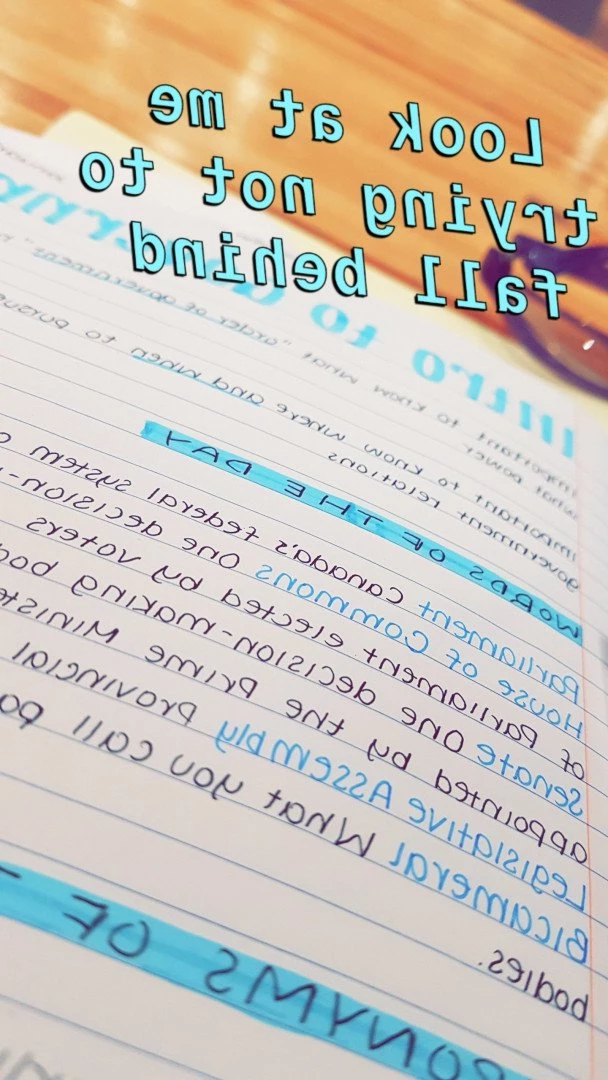 Look at me
trying not to
fall behind
Intro to
important to know what "order of government"
what power.
important to know where and when to pursue
government relations
WORDS OF THE DAY
Parliament Canada's federal system
House of Commons One decision-
of Parliament elected by voters
Senate One decision-making bod
appointed by the Prime Ministe
Legislative Assembly Provincial
Bicameral What you call
bodies.
ONYMS OF